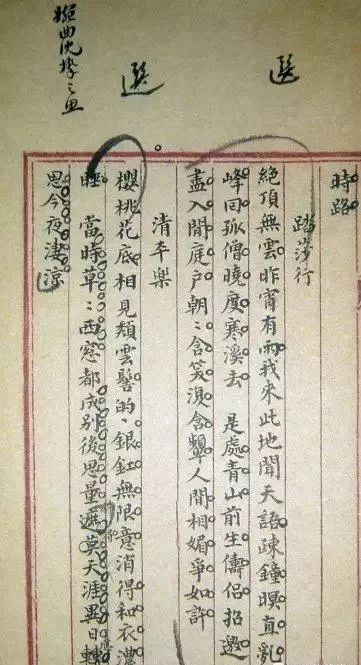 選
選
時路
踏莎行
絕頂無雲昨宵有雨我來此地聞天語疎鐘暝直亂
峰回孤僧曉度寒溪去　是處青山前生儔侶招邀
盡入閒庭戶朝〻含笑復含顰人間相媚爭如許
清平樂
櫻桃花底相見頹雲髻的〻銀釭無限意消得和衣濃
睡　當時草〻西窗都成別後思量遮莫天涯異日轉
思今夜淒涼